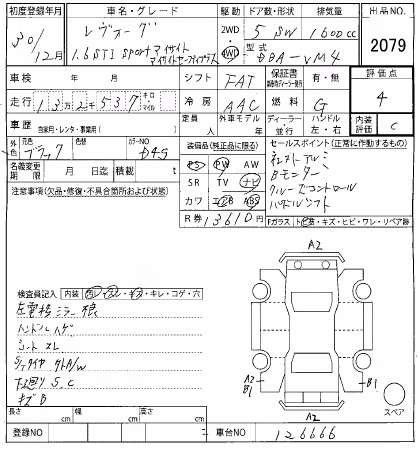 初度登録年月
車名・グレード
駆動
ドア数・形状
排気量
出品NO.
30/12月
レヴォーグ
1.6STI Sport アイサイト
2WD
4WD
5 SW
1600 cc
型式
DBA-VM4
2079
車検 年 月
シフト
FAT
保証書
有・無
評価点
4
走行 13万2千537 キロ マイル
冷房
AAC
燃料
G
車歴 自家用・レンタ・事業用( )
定員 人
外車モデル 年
ディーラー 並行
ハンドル 左・右
内装評価
C
外色 元色 ブラック
色替
カラーNO D4S
装備品(純正品に限る)
セールスポイント(正常に作動するもの)
名義変更期限 月 日迄
積載 t
PS PW AW
SR TV ナビ
カワ エアB ABS
R券 13610 円
注意事項(欠品・修復・不具合箇所および状態)
社外アルミ
Bモニター
クルーズコントロール
パドルシフト
Fガラス
A2
検査員記入
内装 汚レ・スレ・キズ・キレ・コゲ・穴
左電格ミラー
ハンドルハゲ
シートスレ
下廻りS,C
キズB
A2 B1
B1
A2
スペア
長さ cm
幅 cm
高さ cm
登録NO
車台NO
126666